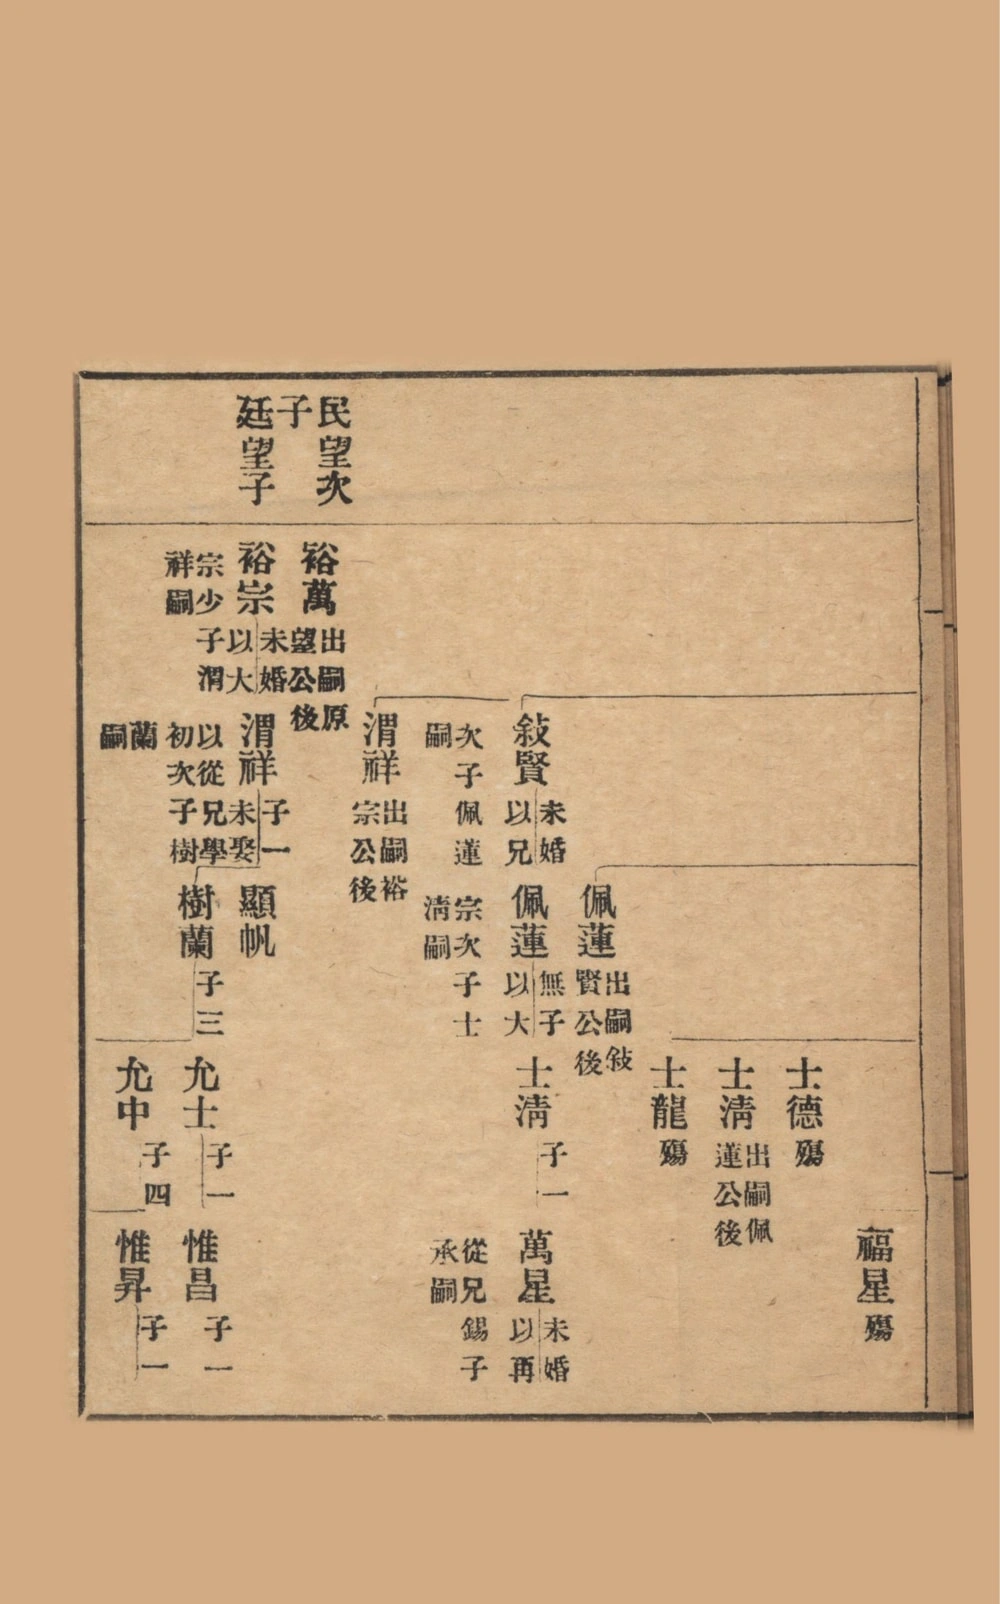 民望次
子
廷望子
裕萬
出嗣原
望公後
裕宗
未婚
以大
宗少子渭
祥嗣
敍賢
未婚
以兄
次子佩蓮
嗣
渭祥
出嗣裕
宗公後
渭祥
子一
未娶
以從兄學
初次子樹
蘭
嗣
佩蓮
出嗣敍
賢公後
佩蓮
無子
以大
宗次子士
淸嗣
顯帆
樹蘭
子三
士德
殤
士淸
出嗣佩
蓮公後
士龍
殤
士淸
子一
允士
子一
允中
子四
福星
殤
萬星
未婚
以再
從兄錫子
承嗣
惟昌
子一
惟昇
子一